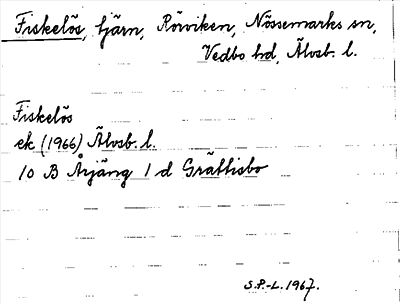 Fiskelös, tjärn, Rörviken, Nössemarks sn,
Vedbo hd, Älvsb. l.
Fiskelös
ek (1966) Älvsb. l.
10 B Årjäng 1 d Grättisbo
S.P.-L. 1967.